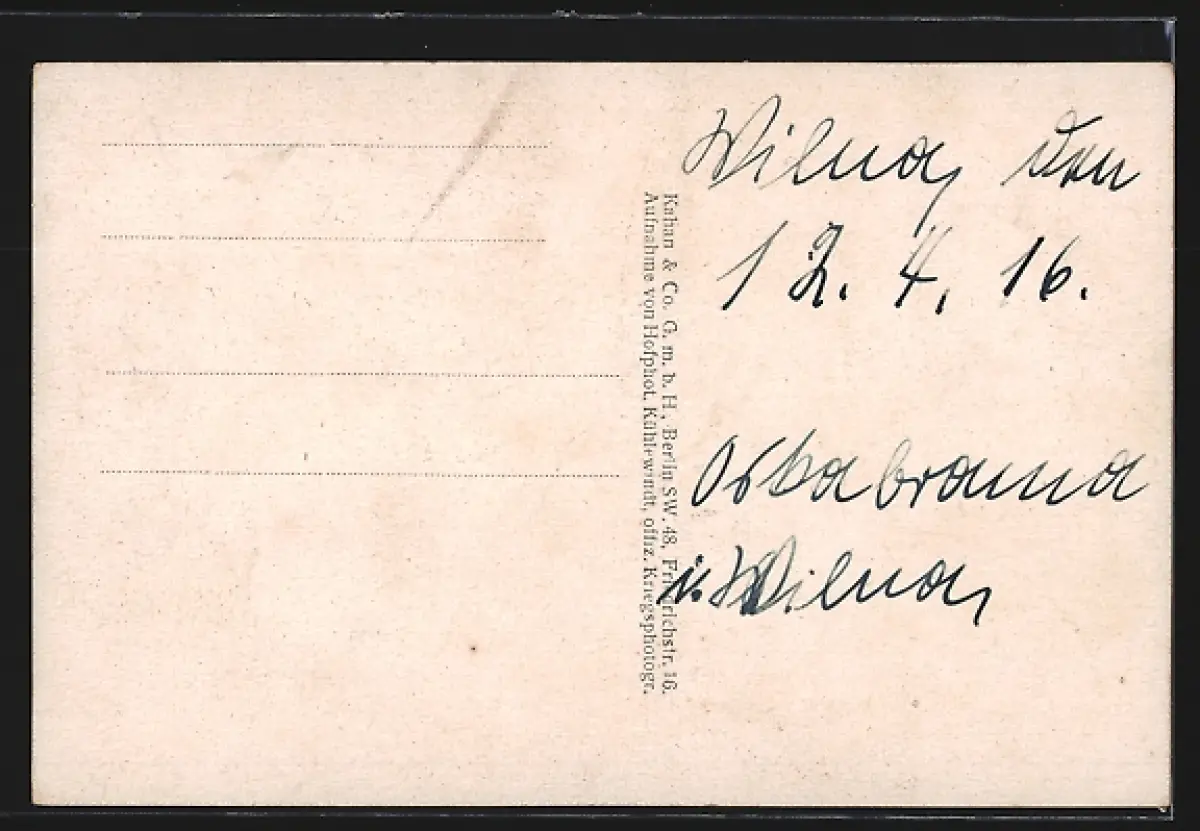 Wilna, den
12. 4. 16.
Ostabrama
i. Wilna,
Kahan & Co. G. m. b. H., Berlin SW. 48, Friedrichstr. 16.
Aufnahme von Hofphot. Kühlewindt, offiz. Kriegsphotogr.